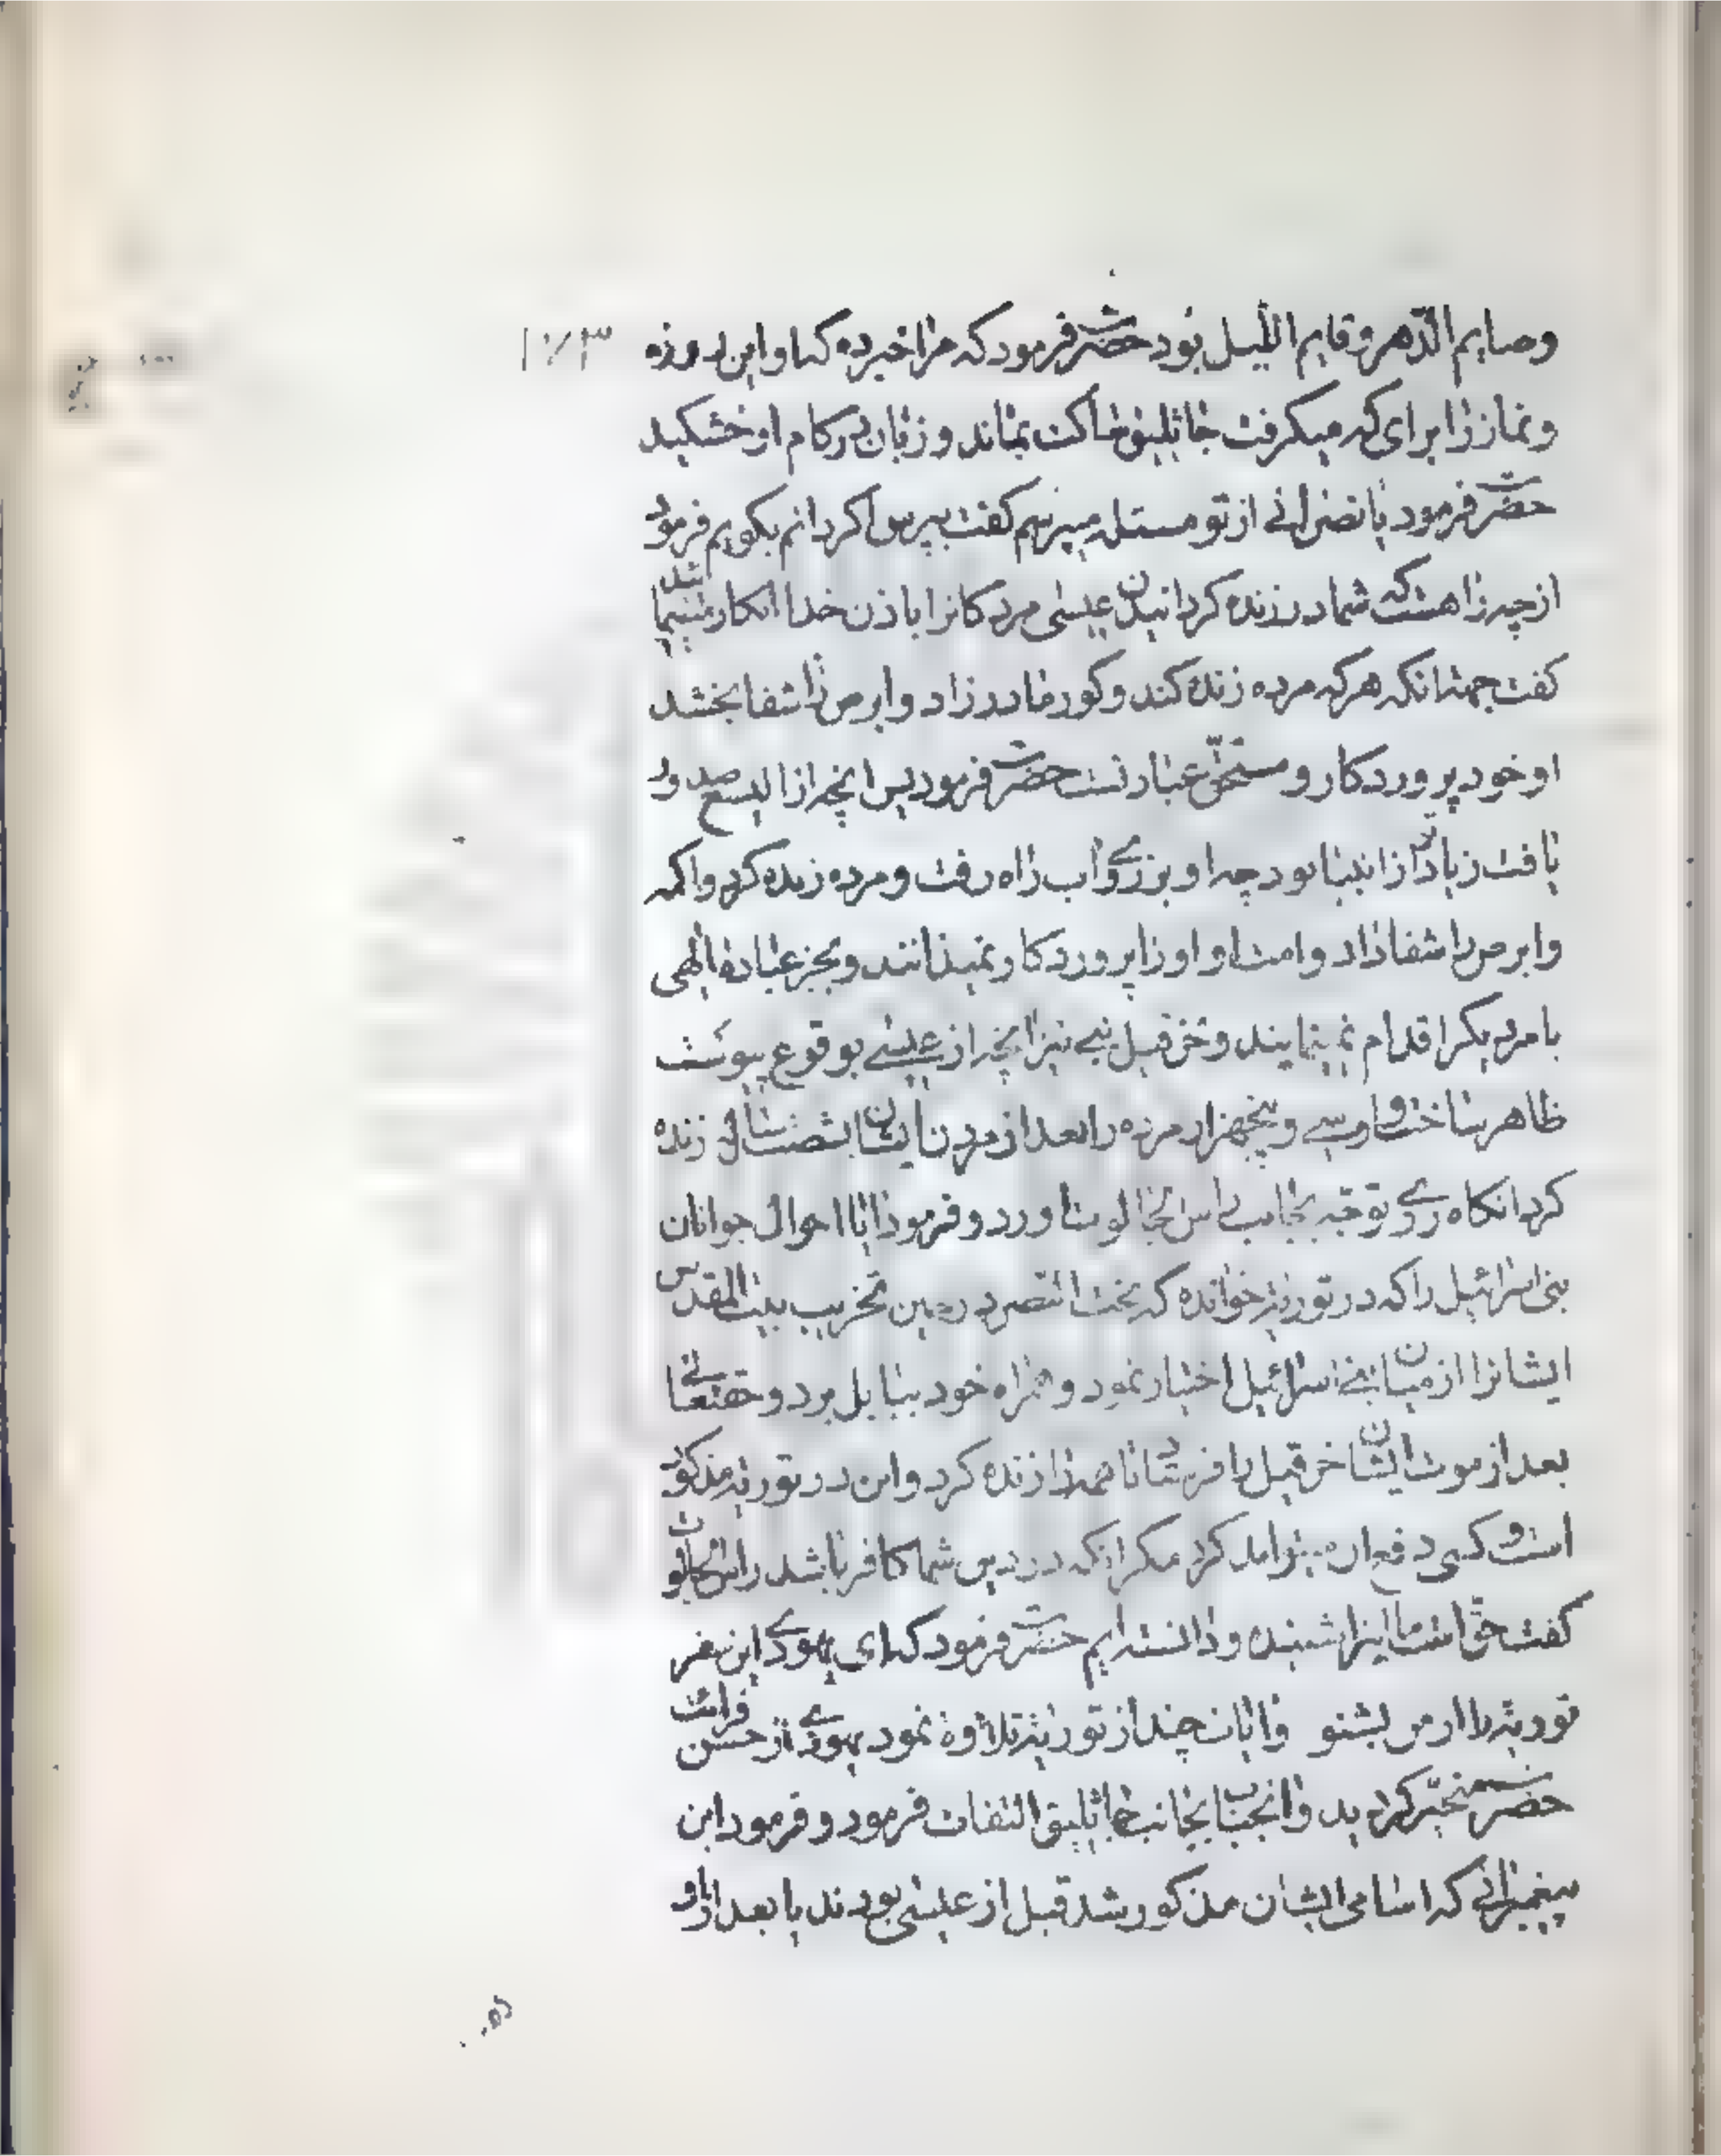 وصایم الدّهر و قایم اللّیل بود حضرت فرمود که مرا خبر ده که او این روزه ۱۷۳
و نماز را برای که میکرفت جاثلیق ساکت بماند و زبان در کام او خشکید
حضرت فرمود یا نصرانی از تو مسئله میپرسم کفت بپرس اکر دانم بکویم فرمود
از چه راهست که شما در زنده کردانیدن عیسی مردکانرا باذن خدا انکار مینمائید
کفت جهة انکه هر که مرده زنده کند و کور مادر زاد و ابرص را شفا بخشد
او خود پروردکار و مستحقّ عبادتست حضرت فرمود پس انچه از الیسع صدور
یافت زیاد از اینها بود چه او بر روی آب راه رفت و مرده زنده کرد و اکمه
و ابرص را شفا داد و امت او او را پروردکار نمیدانند و بجز عبادة الهی
بامر دیکر اقدام نمینمایند و خرقیل نبی نیز انچه از عیسی بوقوع پیوست
ظاهر ساخت و او سی و پنجهزار مرده را بعد از مردن ایشان بشصت سال زنده
کرد انکاه روی توجّه بجانب راس الجالوت اورد و فرمود ایا احوال جوانان
بنی اسرائیل را که در توریة خوانده که بخت النّصر در حین تخریب بیت المقدس
ایشانرا از میان بنی اسرائیل اختیار نمود و همراه خود ببابل برد و حقتعالی
بعد از موت ایشان خرقیل را فرستاد تا همه را زنده کرد و این در توریة مذکور
است و کسی دفع ان نمیتواند کرد مکر انکه در دین شما کافر باشد راس الجالوت
کفت حقّ است ما اینرا شنیده و دانسته ایم حضرت فرمود که ای یهودی این سفر
توریة را از من بشنو و ایات چند از توریة تلاوة نمود یهودی از حسن قرائت
حضرت متحیّر کردید و انجناب بجانب جاثلیق التفات فرمود و فرمود این
پیغمبرانی که اسامی ایشان مذکور شد قبل از عیسی بودند یا بعد از او